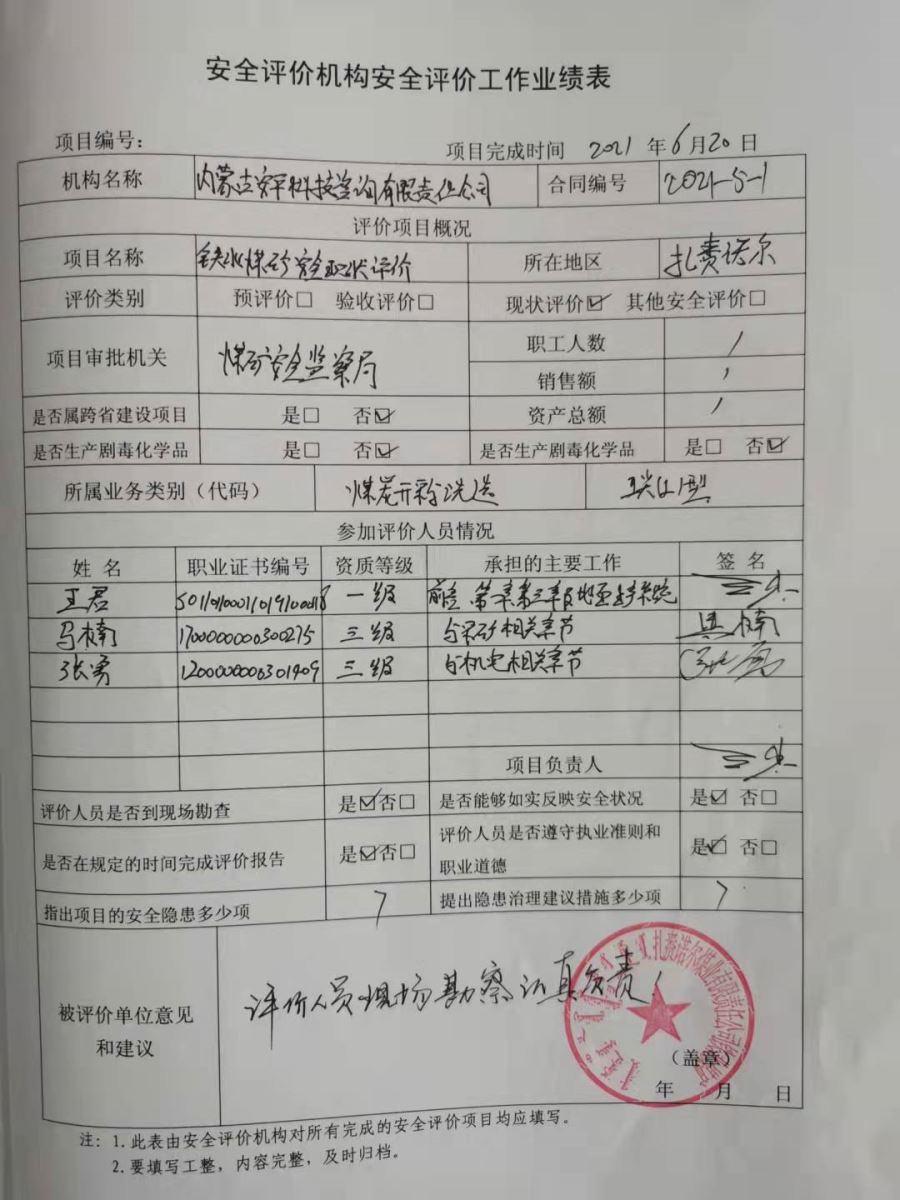 安全评价机构安全评价工作业绩表
项目编号： 项目完成时间 2021 年 6 月 20 日
机构名称 内蒙古安平科技咨询有限责任公司 合同编号 2021-5-1
评价项目概况
项目名称 煤矿安全现状评价 所在地区 扎赉诺尔
评价类别 预评价□ 验收评价□ 现状评价☑ 其他安全评价□
项目审批机关 煤矿安全监察局 职工人数 /
销售额 /
是否属跨省建设项目 是□ 否☑ 资产总额 /
是否生产剧毒化学品 是□ 否☑ 是否生产剧毒化学品 是□ 否☑
所属业务类别（代码） 煤炭开采洗选
参加评价人员情况
姓 名 职业证书编号 资质等级 承担的主要工作 签 名
王君 一级
马楠 1700000000300275 三级 与采矿相关章节 马楠
张勇 1200000000301409 三级 与机电相关章节
项目负责人
评价人员是否到现场勘查 是☑否□ 是否能够如实反映安全状况 是☑ 否□
是否在规定的时间完成评价报告 是☑否□ 评价人员是否遵守执业准则和
职业道德 是☑ 否□
指出项目的安全隐患多少项 7 提出隐患治理建议措施多少项 7
被评价单位意见
和建议
评价人员现场勘察认真负责！
扎赉诺尔煤业有限责任公司
（盖章）
年 月 日
注：1.此表由安全评价机构对所有完成的安全评价项目均应填写。
2.要填写工整，内容完整，及时归档。